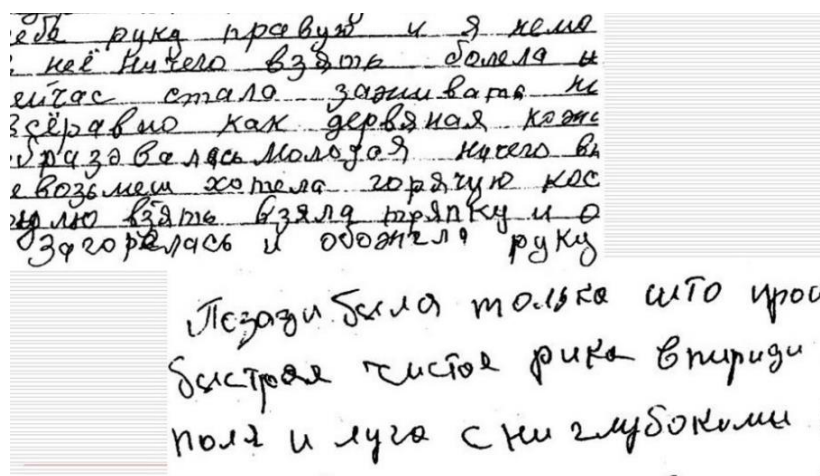 себе руку правую и я немо
неё ничего взять болела и
сейчас стала заживать но
всёравно как дервяная кожа
образавалась молодая ничего вы
е возьмеш хотела горячую кас
рулю взять взяла тряпку и о
загорелась и обожгла руку
Позади была только што прой
быстрая чистоя рика впириди
поля и луга с ни глубокими